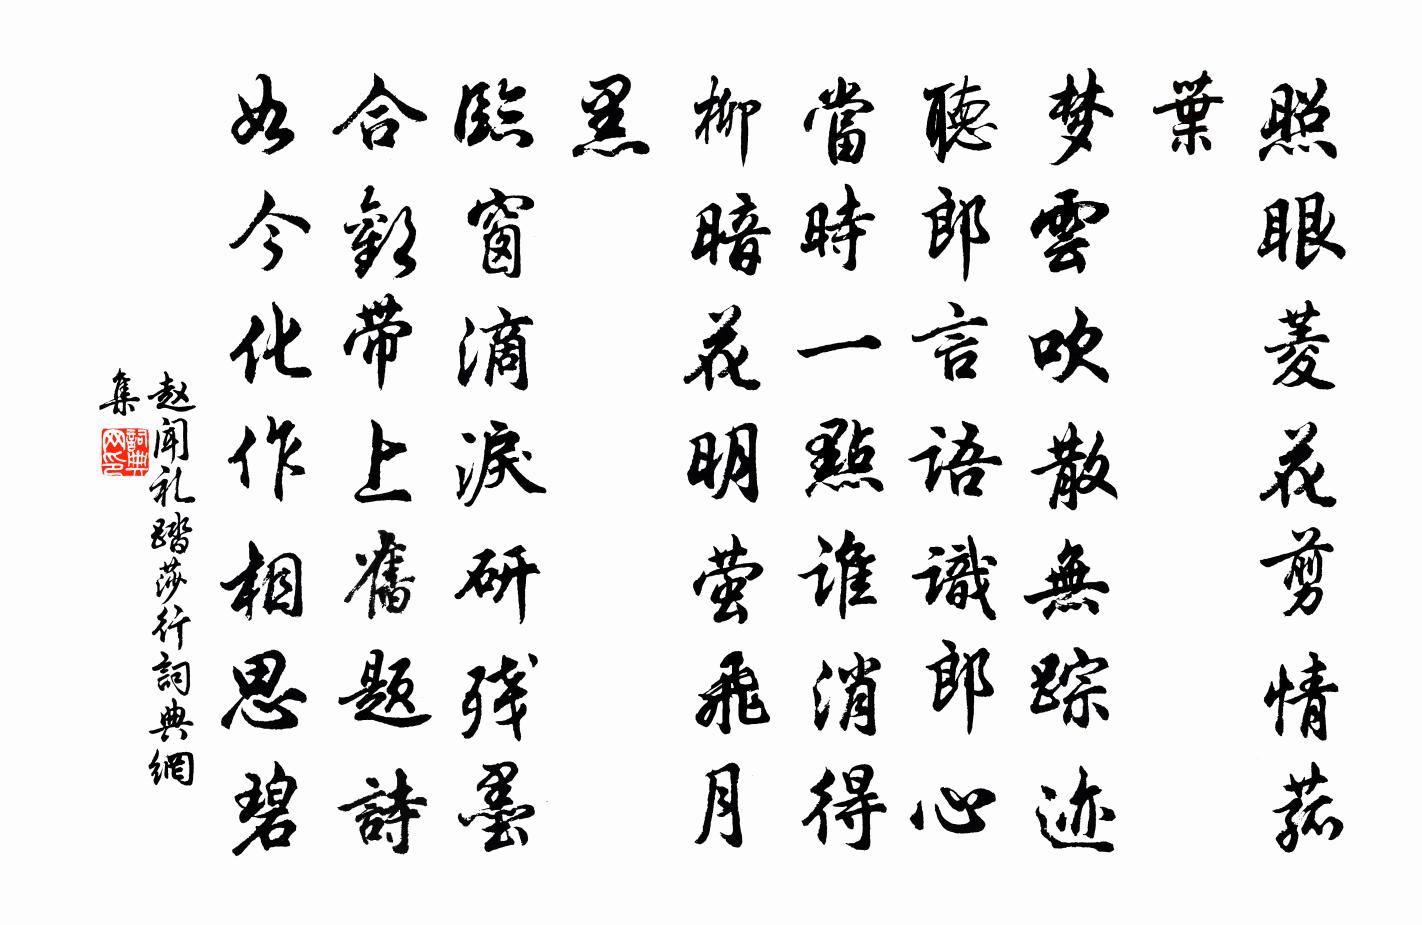 照眼菱花剪情菰
葉
梦雲吹散無踪迹
聽郎言語識郎心
當時一點誰消得
柳暗花明萤飛月
黑
臨窗滴淚研残墨
合歡带上舊题詩
如今化作相思碧
赵闻礼踏莎行詞典網
集
詞典网印